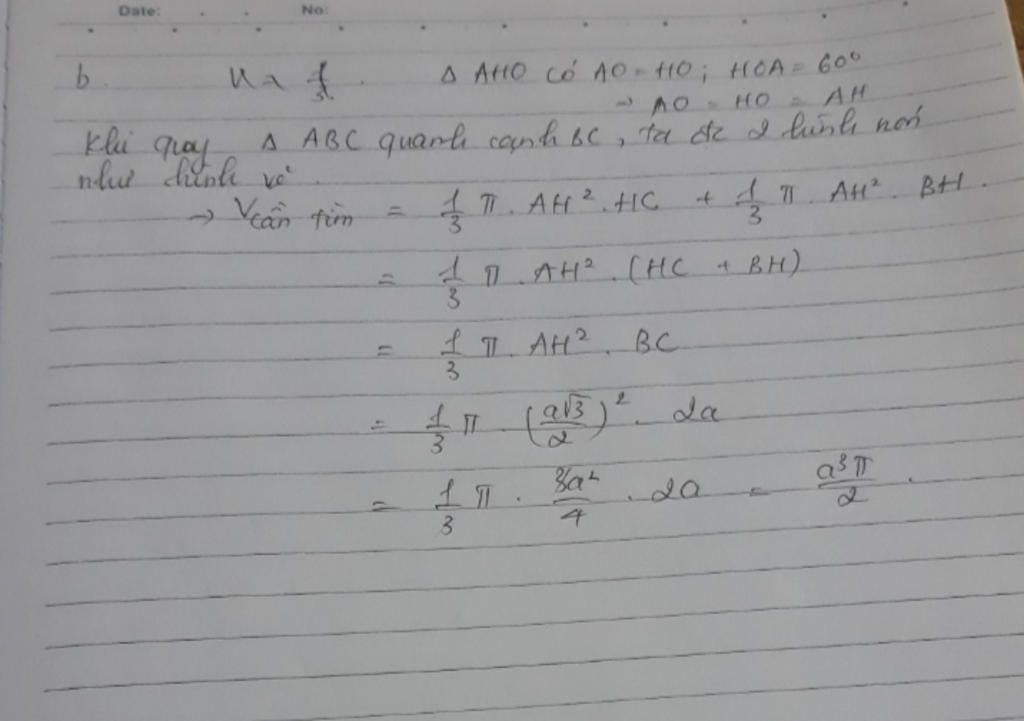 Date: No:
b V = 1/3. Δ AHO có AO = HO; HOA = 60°
→ AO = HO = AH
Khi quay Δ ABC quanh cạnh BC, ta đc 2 hình nón
như hình vẽ.
→ Vcần tìm = 1/3 π. AH². HC + 1/3 π. AH². BH.
= 1/3 π. AH². (HC + BH)
= 1/3 π. AH². BC
= 1/3 π. (a√3/2)². 2a
= 1/3 π. 3a²/4. 2a = a³π/2.